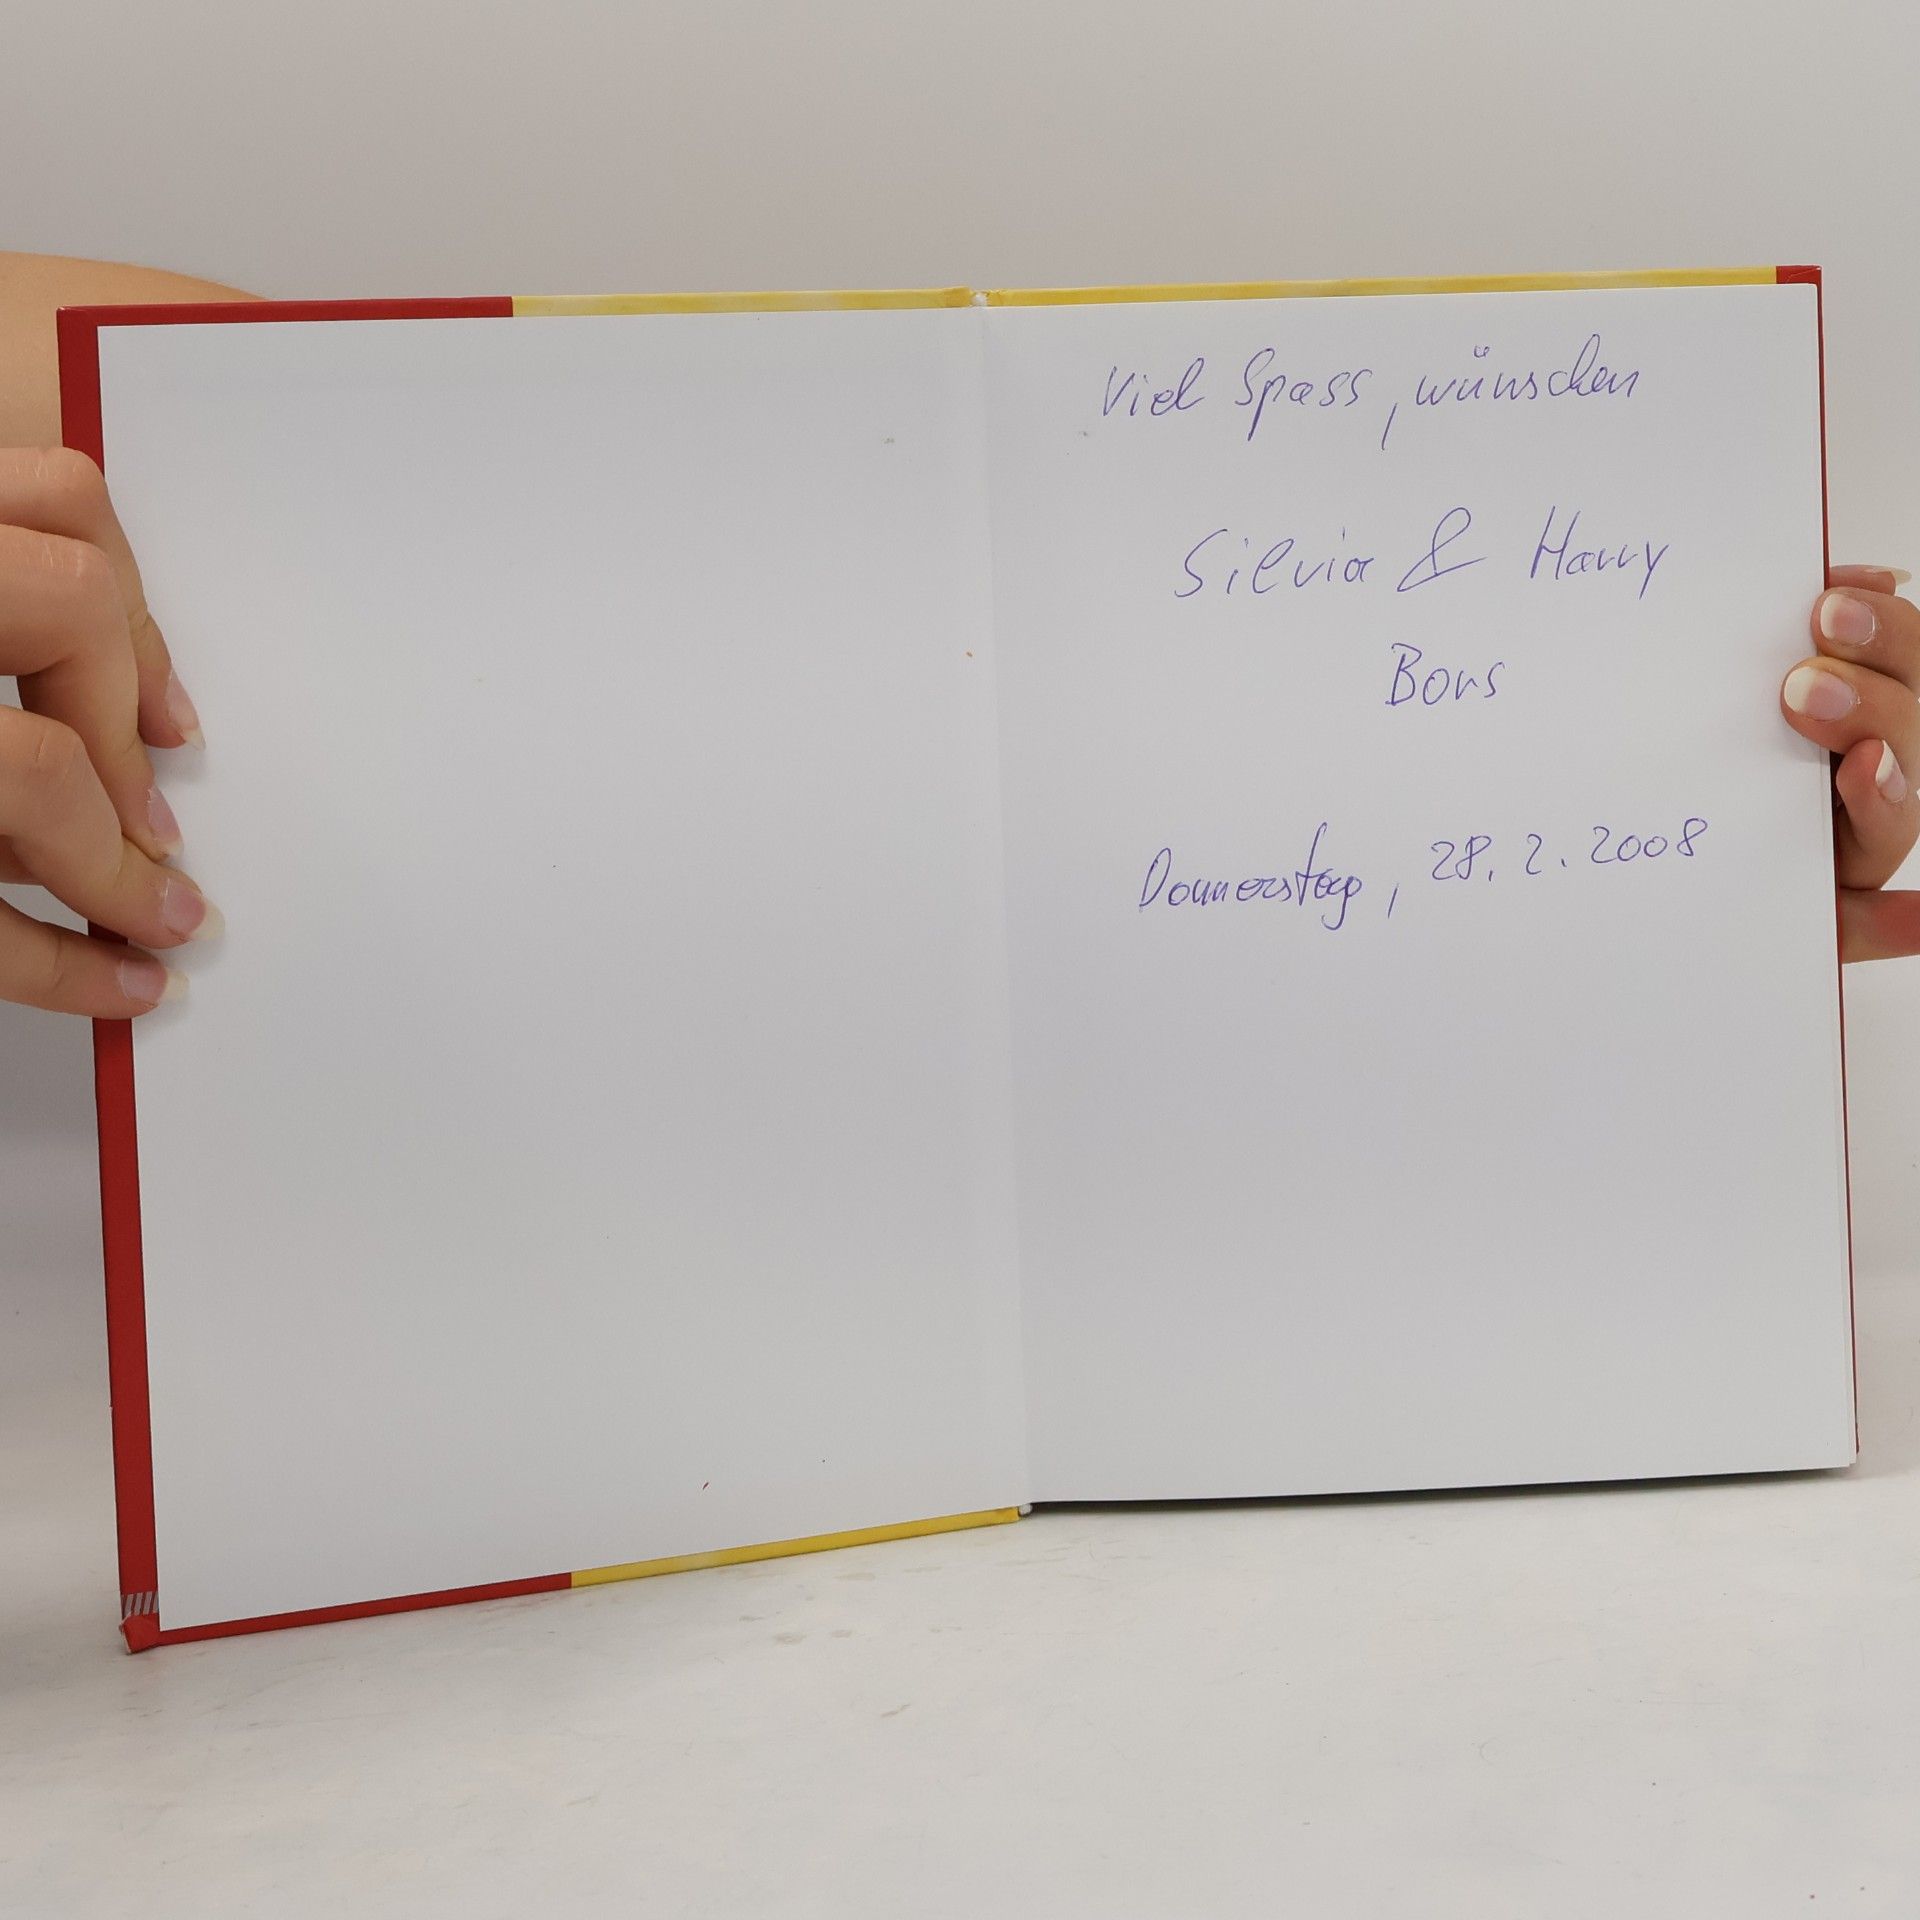 Viel Spass, wünschen
Silvia & Harry
Bors
Donnerstag, 28. 2. 2008